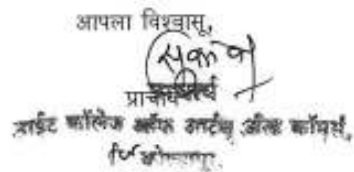 आपला विश्वासू,
प्राचार्य
नाईट कॉलेज ऑफ आर्टस् अॅन्ड कॉमर्स,
कोल्हापूर.